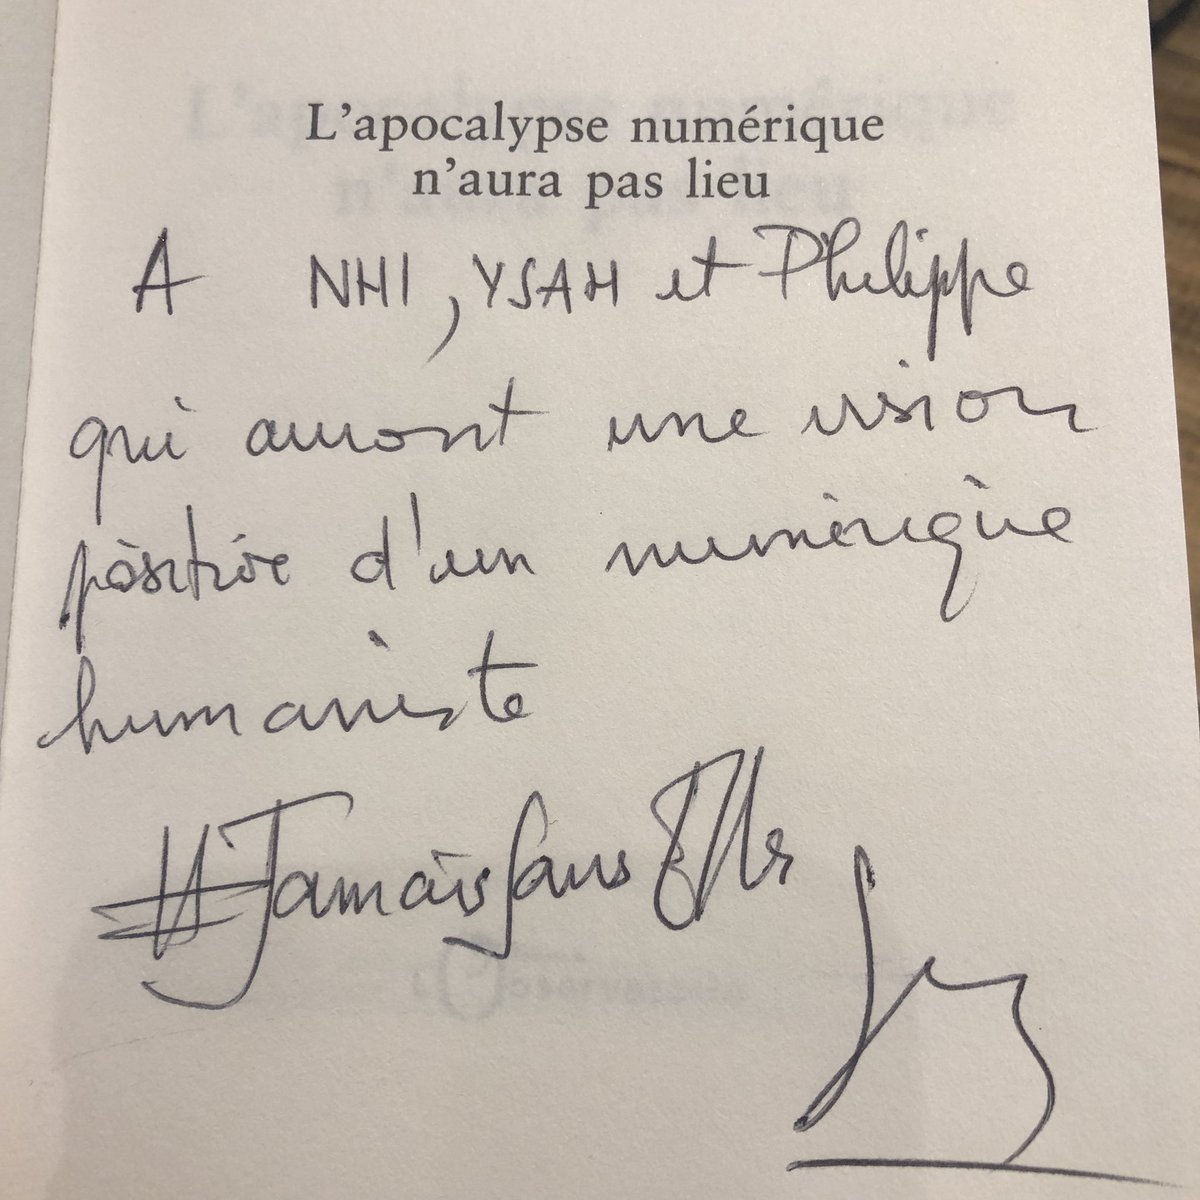 L'apocalypse numérique
n'aura pas lieu
A NHI, YSAH et Philippe
qui auront une vision
positive d'un numérique
humaniste
#JamaisSansElles
L'Observatoire